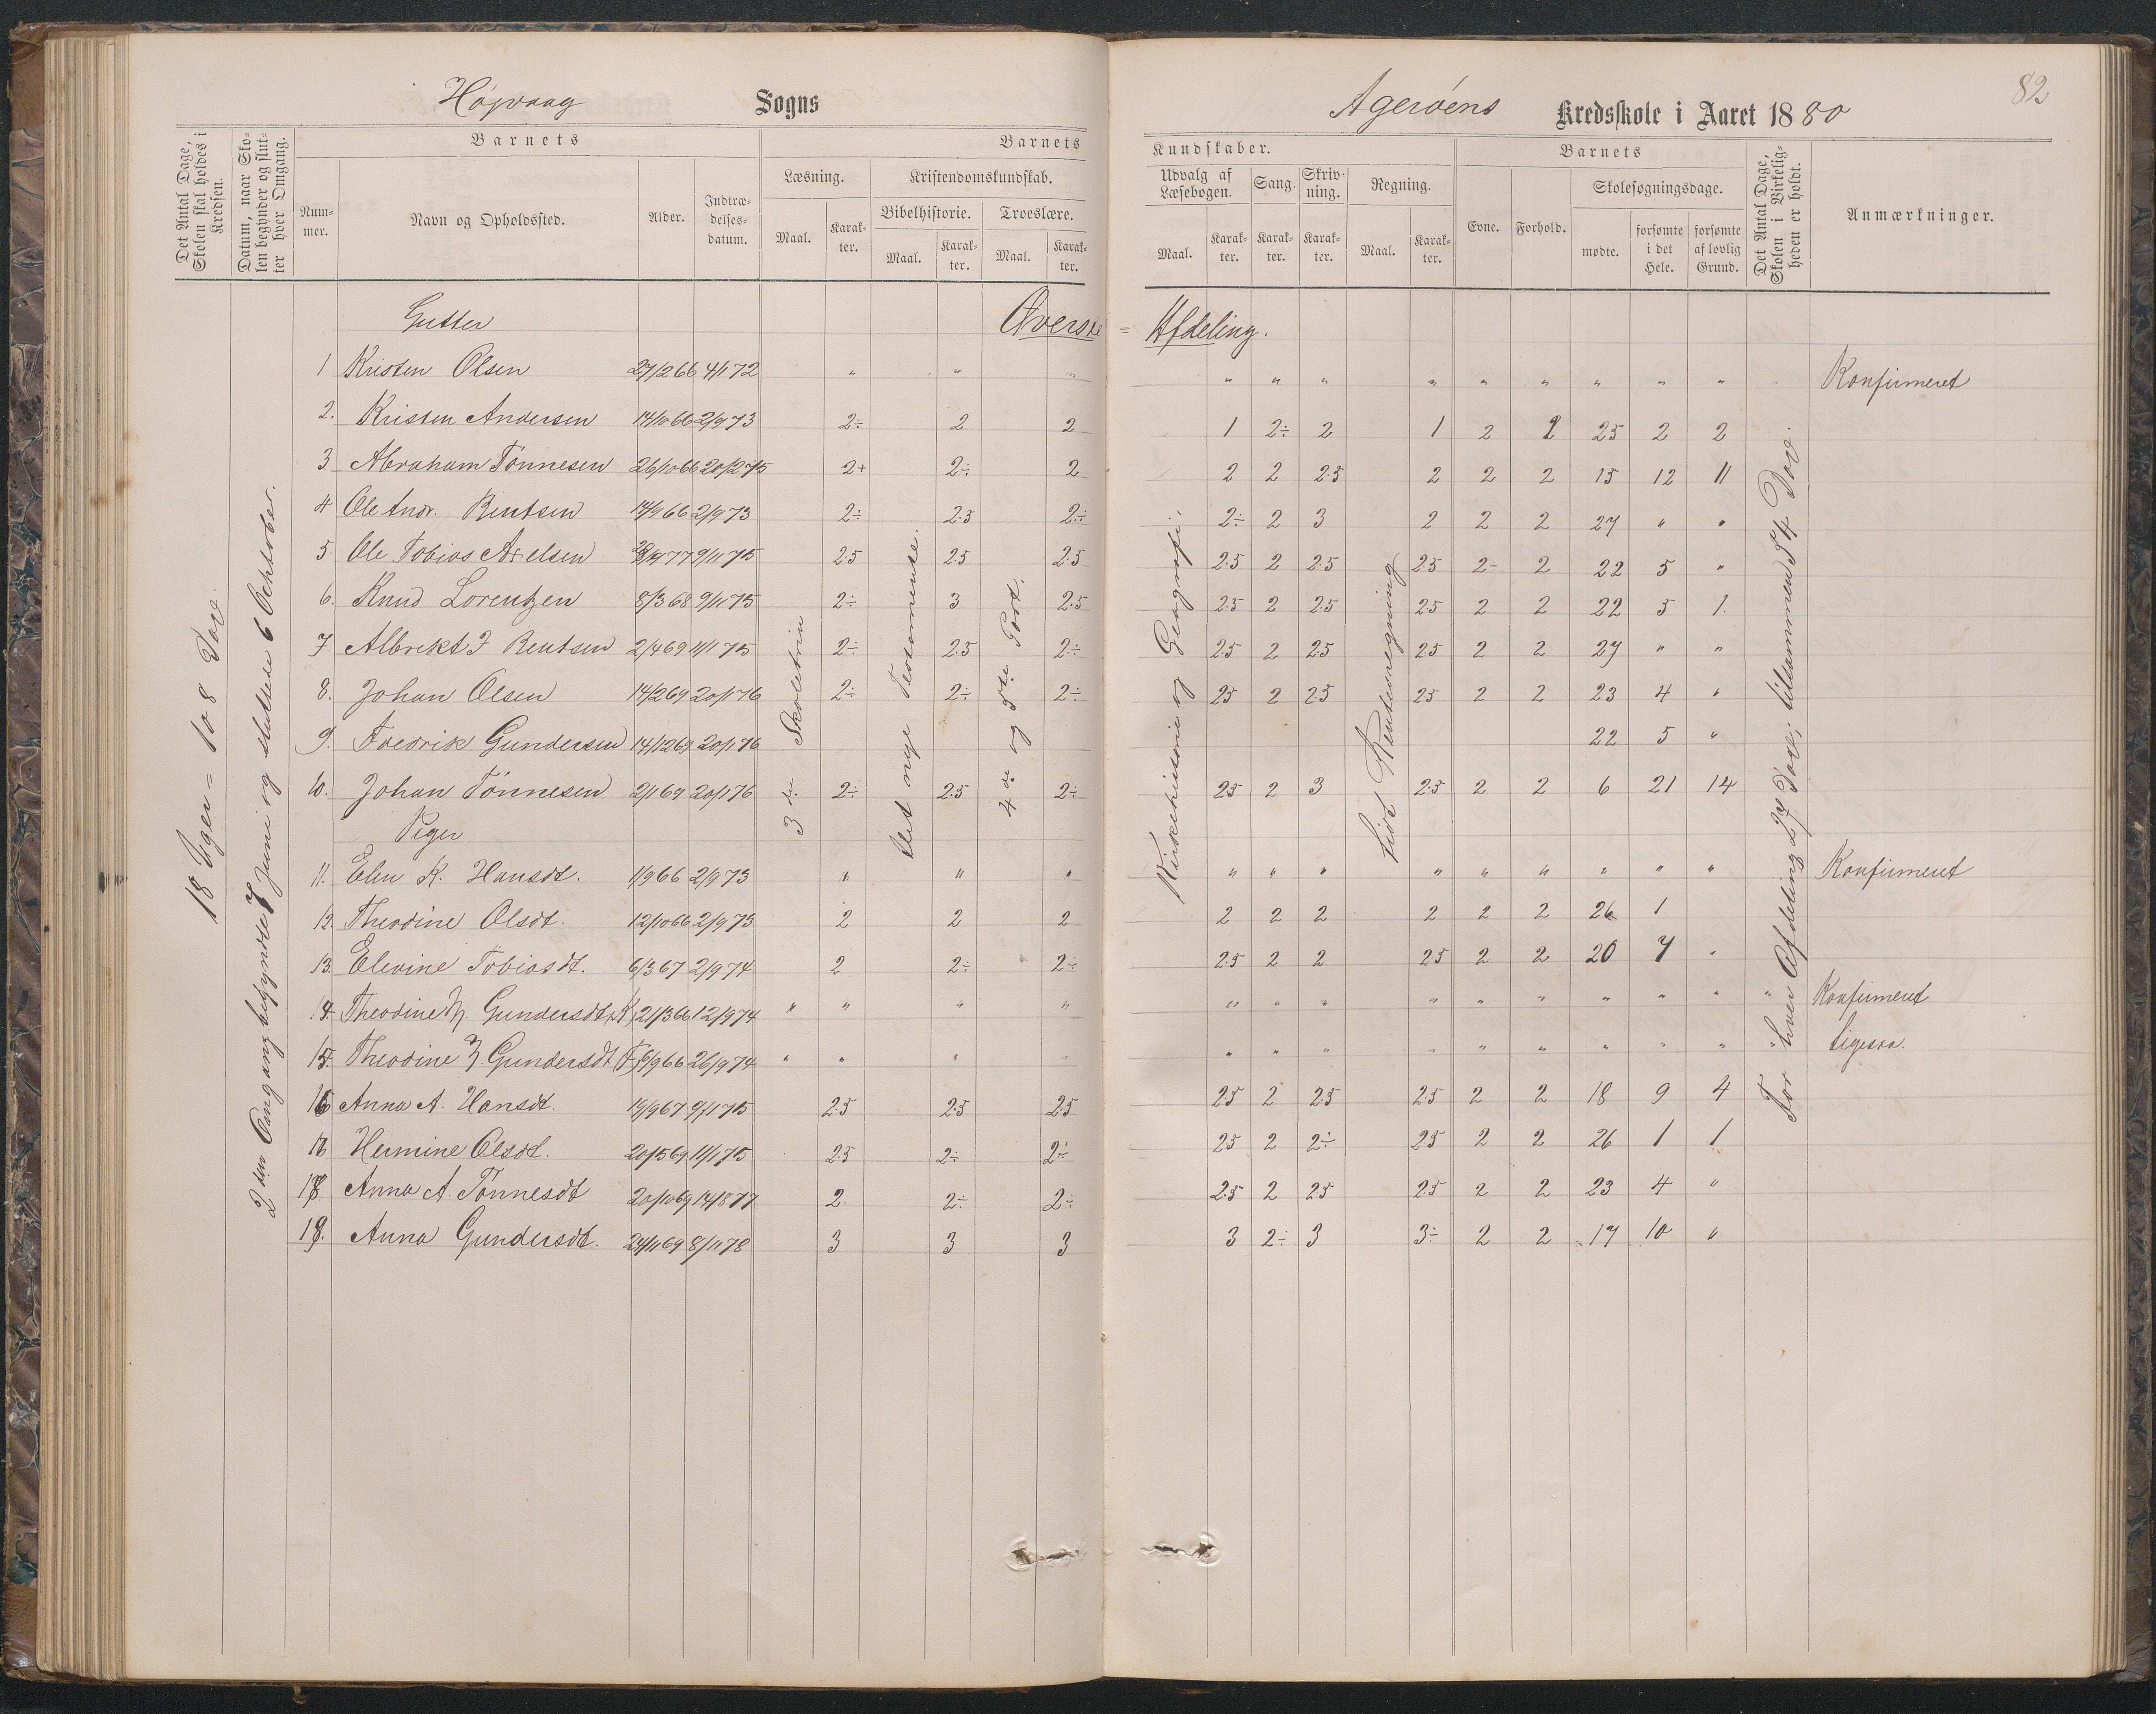 Højvaag Sogns
Agerøens Kredsskole i Aaret 1880
82
Det Antal Dage, Skolen skal holdes i Kredsen.
Datum, naar Skolen begynder og slutter hver Omgang.
Barnets
Nummer.
Navn og Opholdssted.
Alder.
Indtrædelsesdatum.
Barnets
Læsning.
Maal.
Karakter.
Kristendomskundskab.
Bibelhistorie.
Maal.
Karakter.
Troeslære.
Maal.
Karakter.
Kundskaber.
Udvalg af Læsebogen.
Maal.
Karakter.
Sang.
Karakter.
Skrivning.
Karakter.
Regning.
Maal.
Karakter.
Barnets
Evne.
Forhold.
Skolesøgningsdage.
mødte.
forsømte i det Hele.
forsømte af lovlig Grund.
Det Antal Dage, Skolen i Virkeligheden er holdt.
Anmærkninger.
18 Uger = 108 Dage.
2den Omgang begyndte 7 Juni og sluttede 6 Ochtober.
3die Skoletrin
Det nye Testamente.
4de og 5te Part.
Kirkehistorie og Geografi.
Lidt Rentesregning
For hver Afdeling 27 Dage; tilsammen 54 Dage.
Gutter Øverste = Afdeling.
1 Kristen Olsen 27/2 66 4/1 72 " " " " " " " " " " " " Konfirmeret
2. Kristen Andersen 14/10 66 2/9 73 2÷ 2 2 1 2÷ 2 1 2 2 25 2 2
3 Abraham Tønnesen 26/10 66 20/2 75 2+ 2÷ 2 2 2 2.5 2 2 2 15 12 11
4 Ole Andr. Bentsen 14/9 66 2/9 73 2÷ 2.5 2÷ 2÷ 2 3 2 2 2 27 " "
5. Ole Tobias Axelsen 9/11 75 2.5 2.5 2.5 2.5 2 2.5 2.5 2÷ 2 22 5 "
6. Knud Lorentzen 8/3 68 9/11 75 2÷ 3 2.5 2.5 2 2.5 2.5 2 2 22 5 1.
7. Albrekt J Bentsen 2/4 69 11/1 75 2÷ 2.5 2÷ 2.5 2 2.5 2.5 2 2 27 " "
8. Johan Olsen 14/2 69 20/1 76 2÷ 2÷ 2÷ 2.5 2 2.5 2.5 2 2 23 4 "
9. Fredrik Gundersen 14/12 69 20/1 76 22 5 "
10. Johan Tønnesen 2/1 69 20/1 76 2÷ 2.5 2÷ 2.5 2 3 2.5 2 2 6 21 14
Piger
11. Elen K. Hansdt. 1/9 66 2/9 73 " " " " " " " " " " " " Konfirmeret
12. Theodine Olsdt. 12/10 66 2/9 73 2 2 2 2 2 2 2 2 2 26 1
13. Elevine Tobiasdt. 6/3 67 2/9 74 2 2÷ 2÷ 2.5 2 2 2.5 2 2 20 7 "
14. Theodine N. Gundersdt. (K) 21/3 66 12/9 74 " " " " " " " " " " " " " " Konfirmeret
15. Theodine Z. Gundersdt (F) 6/9 66 26/9 74 " " " " " " " " " " " " " " Ligesaa.
16 Anna A. Hansdt. 19/9 67 9/11 75 2.5 2.5 2.5 2.5 2 2.5 2.5 2 2 18 9 4
Hermine Olsdt. 20/5 69 11/1 75 2.5 2÷ 2÷ 2.5 2 2÷ 2.5 2 2 26 1 1
Anna A. Tønnesdt 20/10 69 14/8 77 2 2÷ 2÷ 2.5 2 2.5 2.5 2 2 23 4 "
19. Anna Gundersdt. 24/11 69 8/11 78 3 3 3 3 2÷ 3 3÷ 2 2 17 10 "